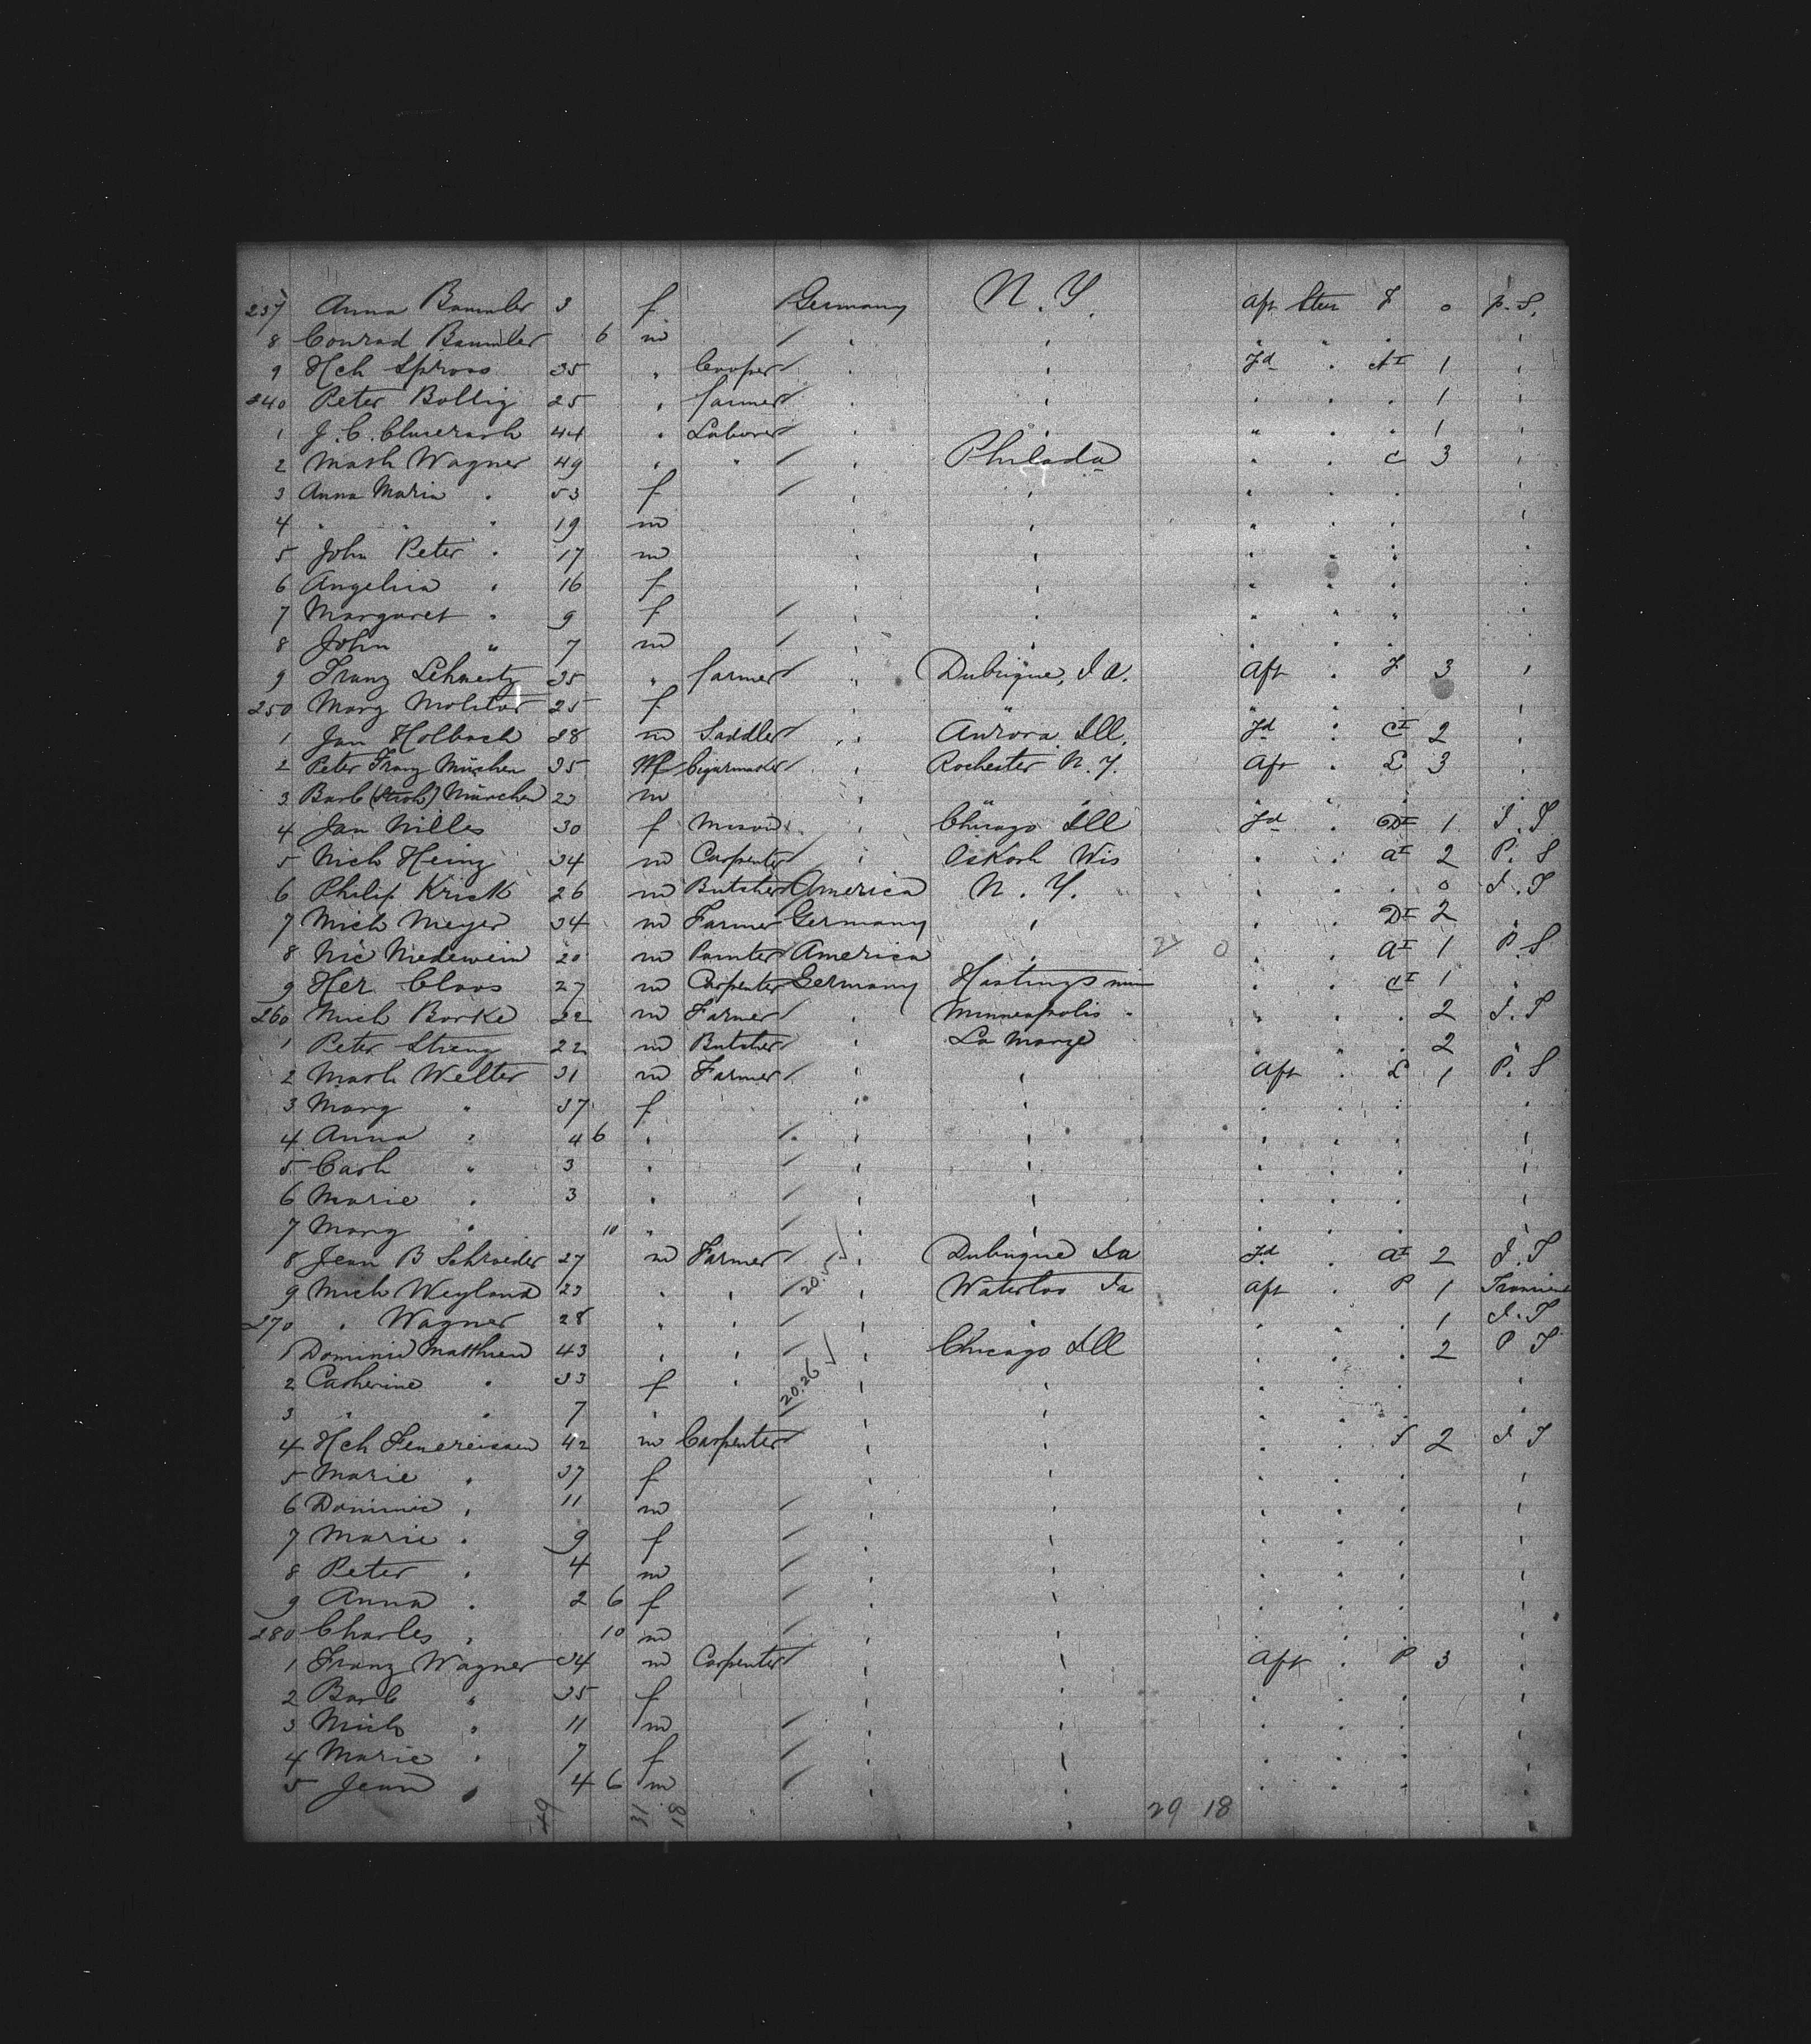 237 Anna Baumler 3 f Germany N.Y. Aft Steer F 0 P.S.
8 Conrad Baumler 6 m / " " " "
9 Hch Sproos 35 " Cooper / " " Fd " 1 "
240 Peter Bollig 25 " farmer / " " " " " 1 "
1 J.C. 44 " Laborer / " " " " " 1 "
2 Math Wagner 49 " " / " Philada " " C 3 "
3 Anna Maria " 53 f / " " " " " "
4 " " " 19 m " " " " " "
5 John Peter " 17 m " " " " " "
6 Angelina " 16 f " " " " " "
7 Margaret " 9 f / " " " " " "
8 John " 7 m / " " " " " "
9 Franz Schwartz 35 " farmer / " Dubuque, Ia. Aft " F 3 "
250 Marg Molitor 25 f " " " " " "
1 Jan Holbach 28 m Saddler / " Aurora Ill. Fd " CI 2 "
2 Peter Franz München 35 M Cigarmaker / " Rochester N.Y. Aft " E 3 "
3 Barb (Stroh) München 23 m " " " " " "
4 Jan Nilles 30 f Mason " Chicago Ill Fd " DI 1 I.T
5 Nich Heinz 34 m Carpenter / " Oskosh Wis " " aI 2 P.S
6 Philip Krick 26 m Butcher America N.Y. " " " 0 I.T
7 Nich Meyer 34 m Farmer Germany " " " DI 2 "
8 Nic Niedewein 20 m Painter America " " " AI 1 P.S
9 Her. Claos 27 m Carpenter Germany Hastings min " " CI 1 "
260 Mich Borke 22 m Farmer / " Minneapolis " " " " 2 I.T
1 Peter Streng 22 m Butcher / " La Marze " " " 2 "
2 Math Welter 31 m Farmer / " " Aft " E 1 P.S
3 Marg " 37 f " " " " " "
4 Anna " 4 6 " / " " " " " "
5 Cath " 3 " / " " " " " "
6 Marie " 3 " / " " " " " "
7 Marg " 10 " / " " " " " "
8 Jean B Schroeder 27 m Farmer / " Dubuque Ia Fd " aI 2 I.T
9 Mich Weyland 23 " " / " Waterloo Ia Aft " P 1 Transient
270 " Wagner 28 " " / " " " " " 1 I.T
1 Dominic Matthieu 43 " " / " Chicago Ill " " " 2 P T
2 Catherine " 33 f " 20.26 " " " " " "
3 " " 7 " / " " " " " "
4 Hch 42 m Carpenter / " " " " S 2 I T
5 Marie " 37 f " " " " " "
6 Dominic " 11 m / " " " " " "
7 Marie " 9 f / " " " " " "
8 Peter " 4 m / " " " " " "
9 Anna " 2 6 f / " " " " " "
280 Charles " 10 m / " " " " " "
1 Franz Wagner 34 m Carpenter / " " Aft " P 3 "
2 Barb " 35 f " " " " " "
3 Mich " 11 m / " " " " " "
4 Marie " 7 f / " " " " " "
5 Jean " 4 6 m / " " " " " "
49 31 18 29 18